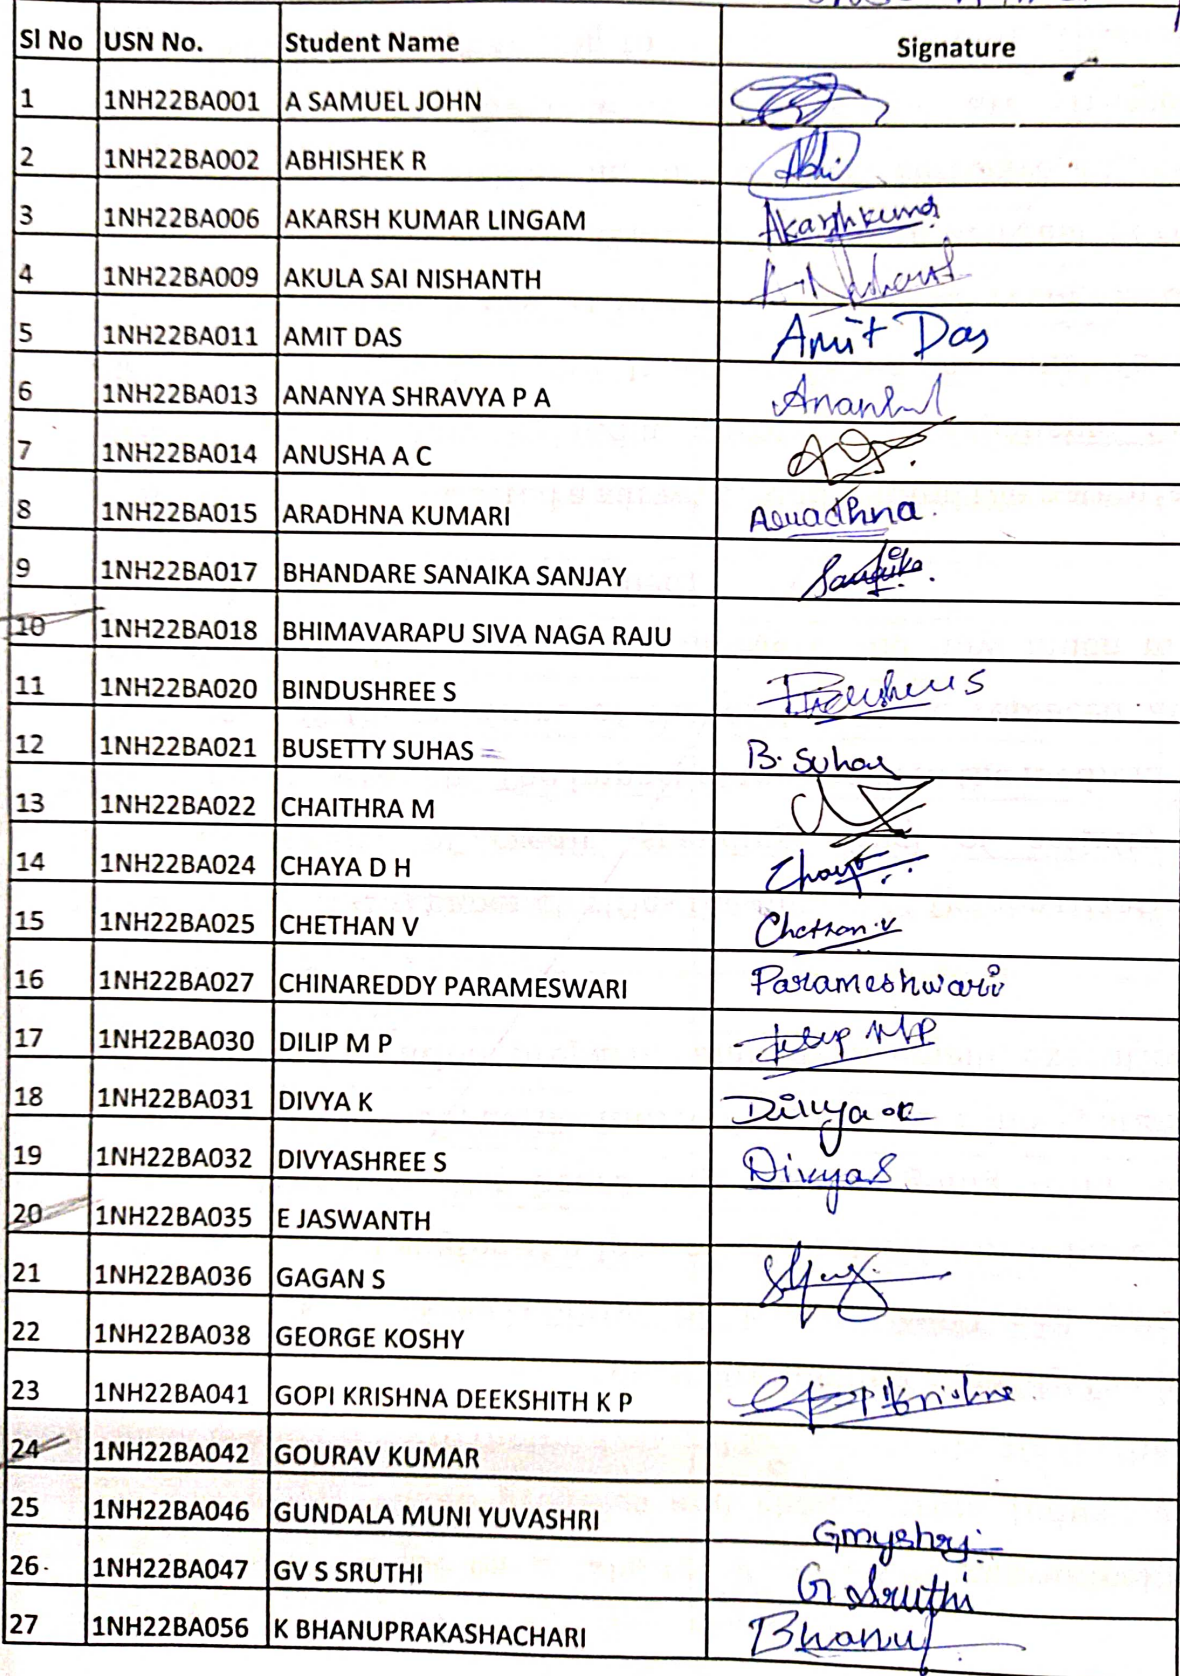 Sl No USN No. Student Name Signature
1 1NH22BA001 A SAMUEL JOHN
2 1NH22BA002 ABHISHEK R Abhi
3 1NH22BA006 AKARSH KUMAR LINGAM Akarshkumar
4 1NH22BA009 AKULA SAI NISHANTH
5 1NH22BA011 AMIT DAS Amit Das
6 1NH22BA013 ANANYA SHRAVYA P A
7 1NH22BA014 ANUSHA A C
8 1NH22BA015 ARADHNA KUMARI Aradhna.
9 1NH22BA017 BHANDARE SANAIKA SANJAY Sanaika
10 1NH22BA018 BHIMAVARAPU SIVA NAGA RAJU
11 1NH22BA020 BINDUSHREE S
12 1NH22BA021 BUSETTY SUHAS = B. Suhas
13 1NH22BA022 CHAITHRA M
14 1NH22BA024 CHAYA D H Chaya
15 1NH22BA025 CHETHAN V Chethan.v
16 1NH22BA027 CHINAREDDY PARAMESWARI Parameshwari
17 1NH22BA030 DILIP M P Dilip MP
18 1NH22BA031 DIVYA K Divya.K
19 1NH22BA032 DIVYASHREE S DivyaS
20 1NH22BA035 E JASWANTH
21 1NH22BA036 GAGAN S
22 1NH22BA038 GEORGE KOSHY
23 1NH22BA041 GOPI KRISHNA DEEKSHITH K P Gopikrishna
24 1NH22BA042 GOURAV KUMAR
25 1NH22BA046 GUNDALA MUNI YUVASHRI Gmyshry
26 1NH22BA047 GV S SRUTHI G Sruthi
27 1NH22BA056 K BHANUPRAKASHACHARI Bhanu